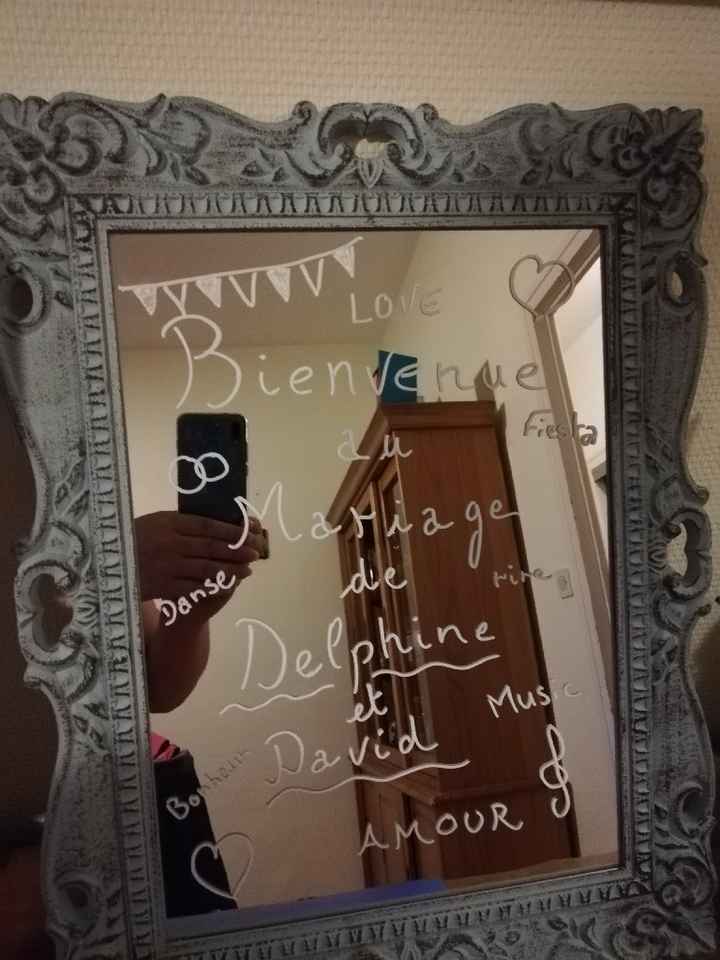 LOVE
Bienvenue
Fiesta
au
Mariage
Danse
de
rire
Delphine
et
Music
David
Bonheur
AMOUR